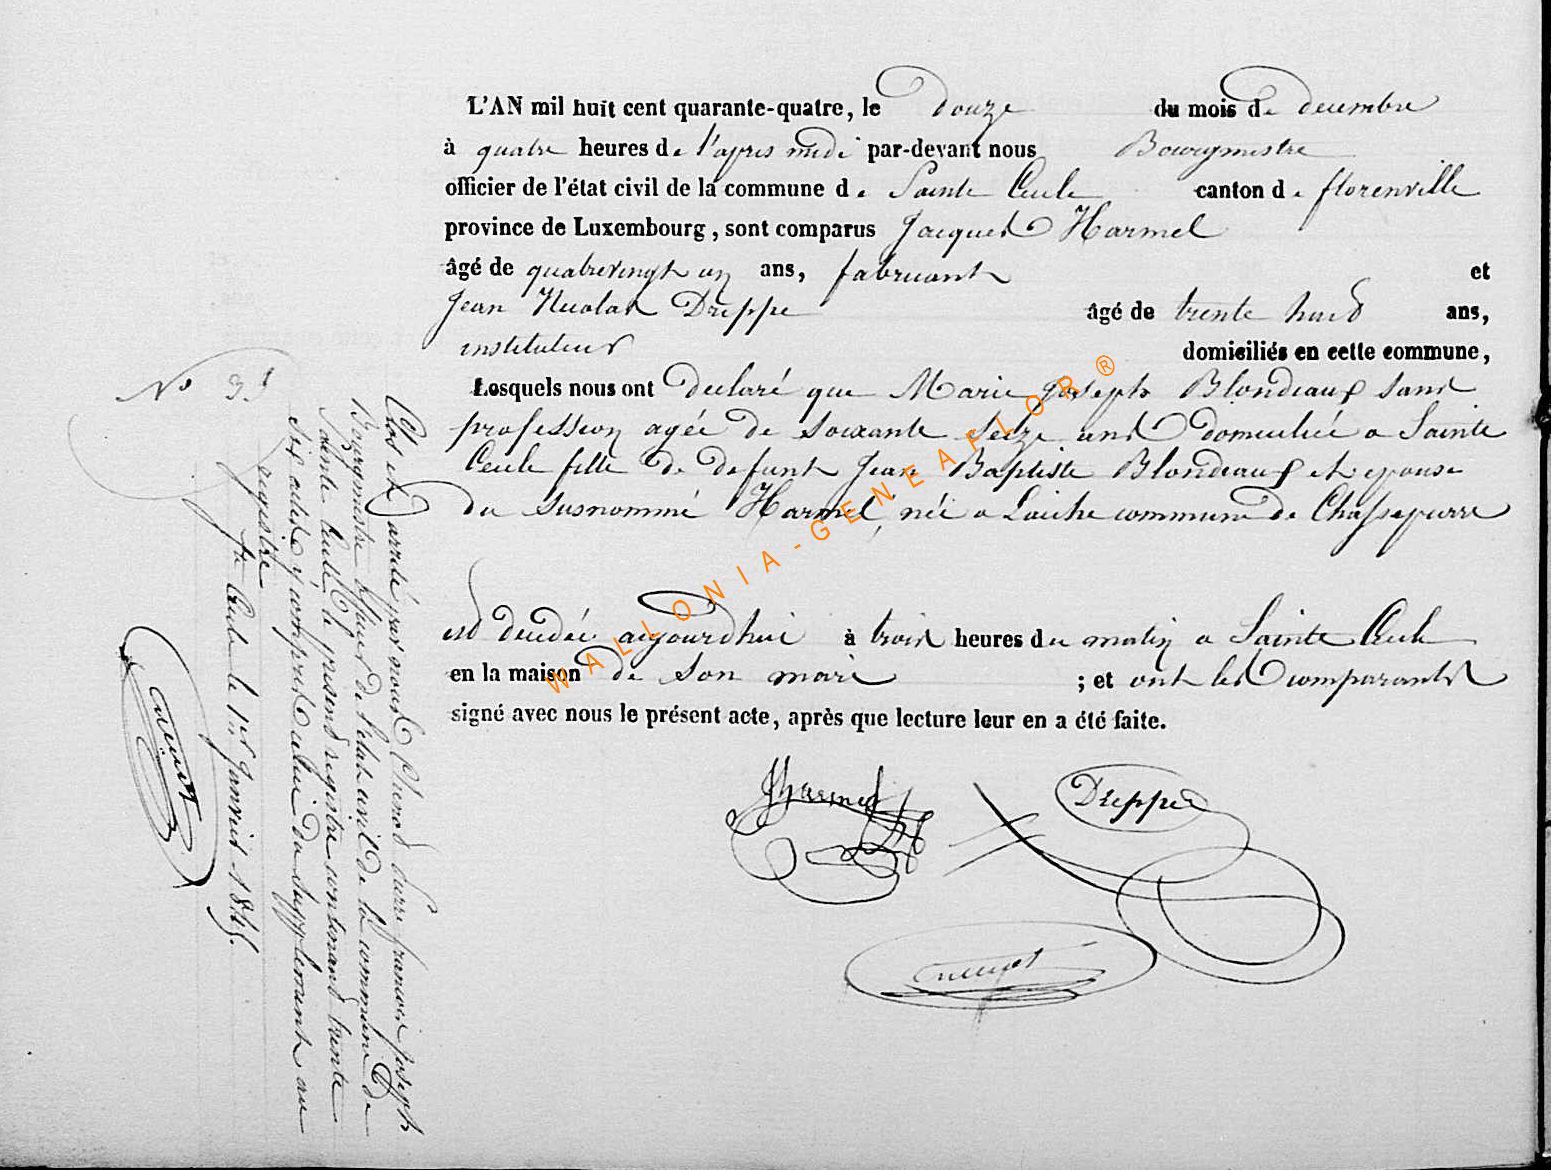 L'AN mil huit cent quarante-quatre, le douze du mois de decembre
à quatre heures de l'apres midi par-devant nous Bourgmestre
officier de l'état civil de la commune de Sainte Cecile canton de florenville
province de Luxembourg, sont comparus Jacques Harmel
âgé de quatrevingt un ans, fabricant et
Jean Nicolas Dreppe âgé de trente huit ans,
instituteur domiciliés en cette commune,
Lesquels nous ont declaré que Marie joseph Blondeaux sans
profession agée de soixante seize ans domiciliée a Sainte
Cecile fille de defunt Jean Baptiste Blondeaux et epouse
du susnommé Harmel, née a Laiche commune de Chassepierre
est decedée aujourdhui à trois heures du matin a Sainte Cecile
en la maison de son mari ; et ont les comparants
signé avec nous le présent acte, après que lecture leur en a été faite.
JHarmel
Dreppe
No 31
Clos et arreté par nous pierre francois joseph
Bourgmestre officier de l'etat civil de la commune de
Sainte Cecile le present registre contenant trente
six actes y compris celui du supplement au
registre
Ste Cecile le 1er Janvier 1845.
WALLONIA-GENEAFLOR®